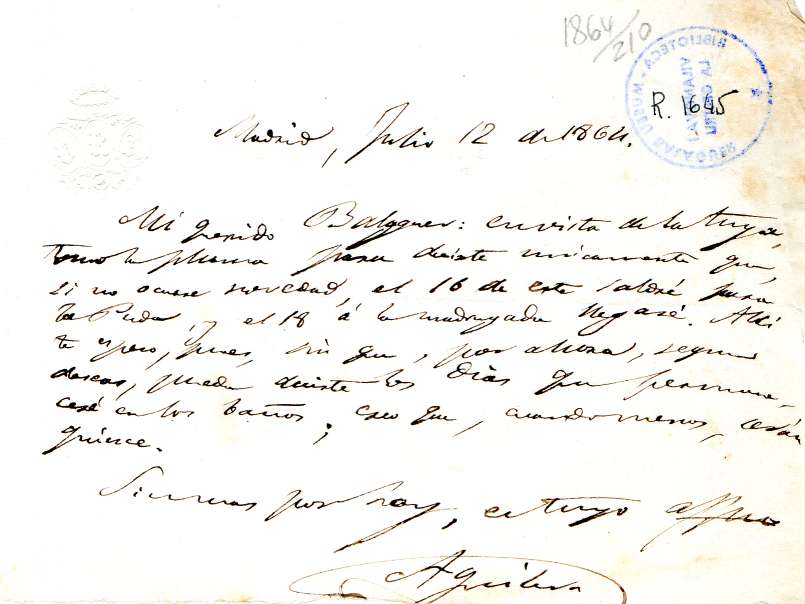 1864/210
BIBLIOTECA - MUSEU BALAGUER
VILANOVA I
LA GELTRÚ
R. 1645
Madrid, Julio 12 de 1864.
Mi querido Balaguer: en vista de la tuya,
tomo la pluma para decirte unicamente que,
si no ocurre novedad, el 16 de este saldré para
la Puda, y el 18 á la madrugada llegaré. Allí
te espero, pues, sin que, por ahora, segun
deseas, pueda decirte los dias que permane-
ceré en los baños; creo que, cuando menos, serán
quince.
Sin mas por hoy, es tuyo affmo
Aguilera